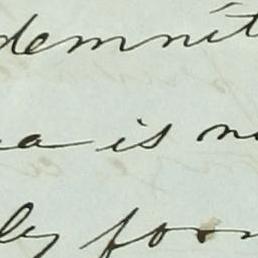 demnit
a is n
ly foun